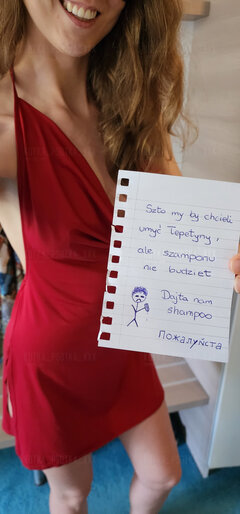 Szto my by chcieli
umyć Tepetyny,
ale szamponu
nie budziet
Dajta nam
shampoo
Пожалуйста